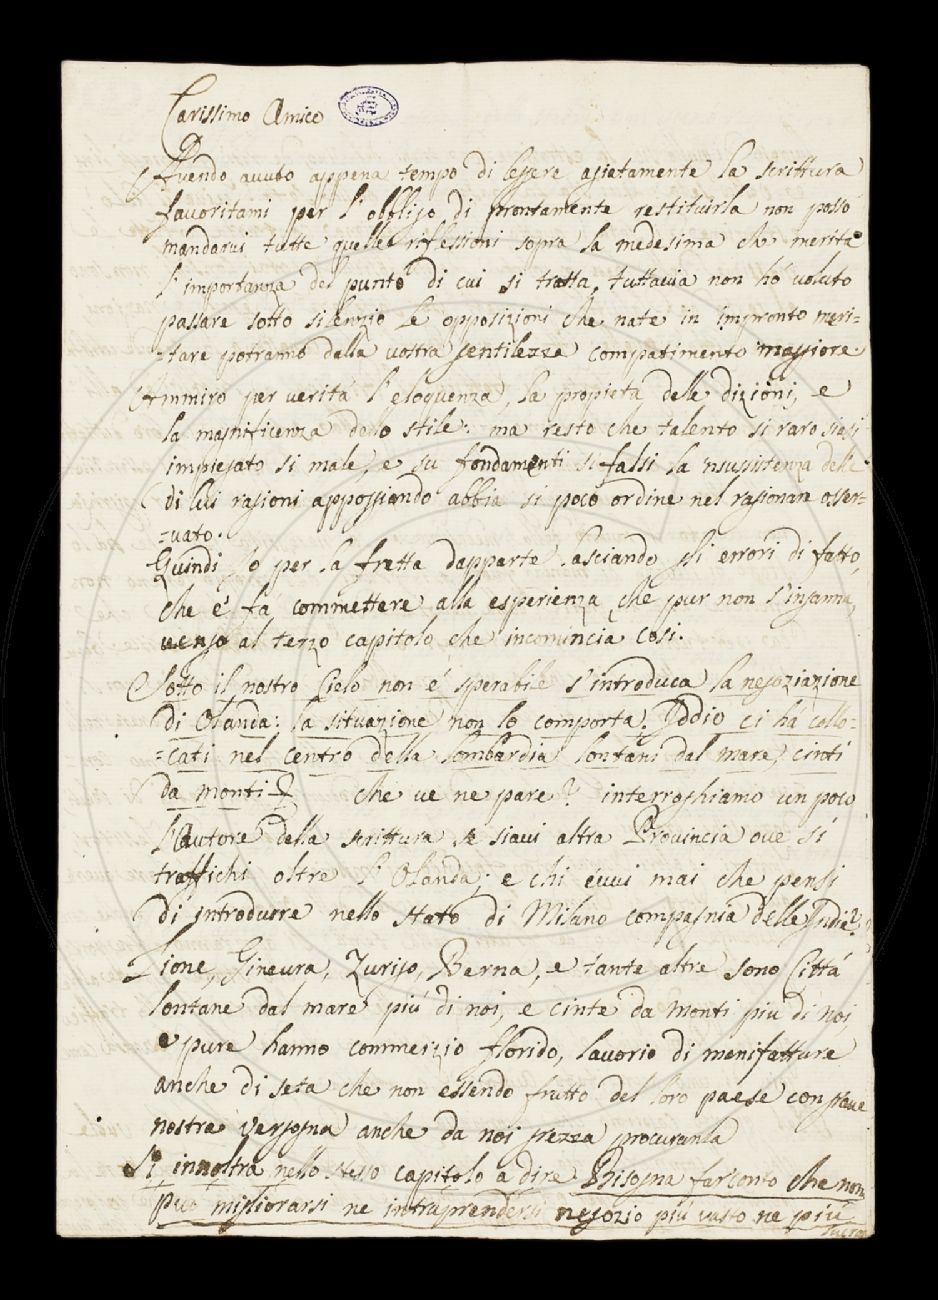 Carissimo Amico
Avendo avuto appena tempo di legere agiatamente la scrittura
favoritami per l'obbligo di prontamente restituirla non posso
mandarvi tutte quelle riflessioni sopra la medesima che merita
l'importanza del punto di cui si tratta, tuttavia non hó voluto
passare sotto silenzio le opposizioni che nate in impronto meri=
=tare potranno dalla vostra gentilezza compatimento maggiore.
Ammiro per veritá l'eloquenza, la propietá delle dizioni, e
la magnificenza dello stile: ma resto che talento si raro siasi
impiegato si male, e su fondamenti si falsi la 'nsusistenza delle
di lui ragioni appoggiando abbia si poco ordine nel ragionar osser=
=vato.
Quindi Io per la fratta dapparte lasciando gli errori di fatto,
che é fá commettere alla esperienza, che pur non s'inganna,
vengo al terzo capitolo che incomincia cosi.
Sotto il nostro Cielo non é sperabile s'introduca la negoziazione
di Olanda: la situazione non lo comporta. Yddio ci há collo=
=cati nel centro della Lombardia lontani dal mare, cinti
da monti & che ve ne pare? interroghiamo un poco
l'autore della scrittura se siavi altra Provincia ove si
traffichi oltre l'Olanda; e chi évvi mai che pensi
di introdurre nello stato di Milano compagnia delle Yndie?
Lione, Ginevra, Zurigo, Berna, e tante altre sono Cittá
lontane dal mare piú di noi, e cinte da monti piu di noi
e pure hanno commerzio florido, lavorio di menifatture
anche di seta che non essendo frutto del loro paese con grave
nostra vergogna anche da noi grezza procuranla
Si innoltra nello stesso capitolo a dire Bisogna far conto che non
puo migliorarsi ne intraprendersi negozio piú vasto ne piú